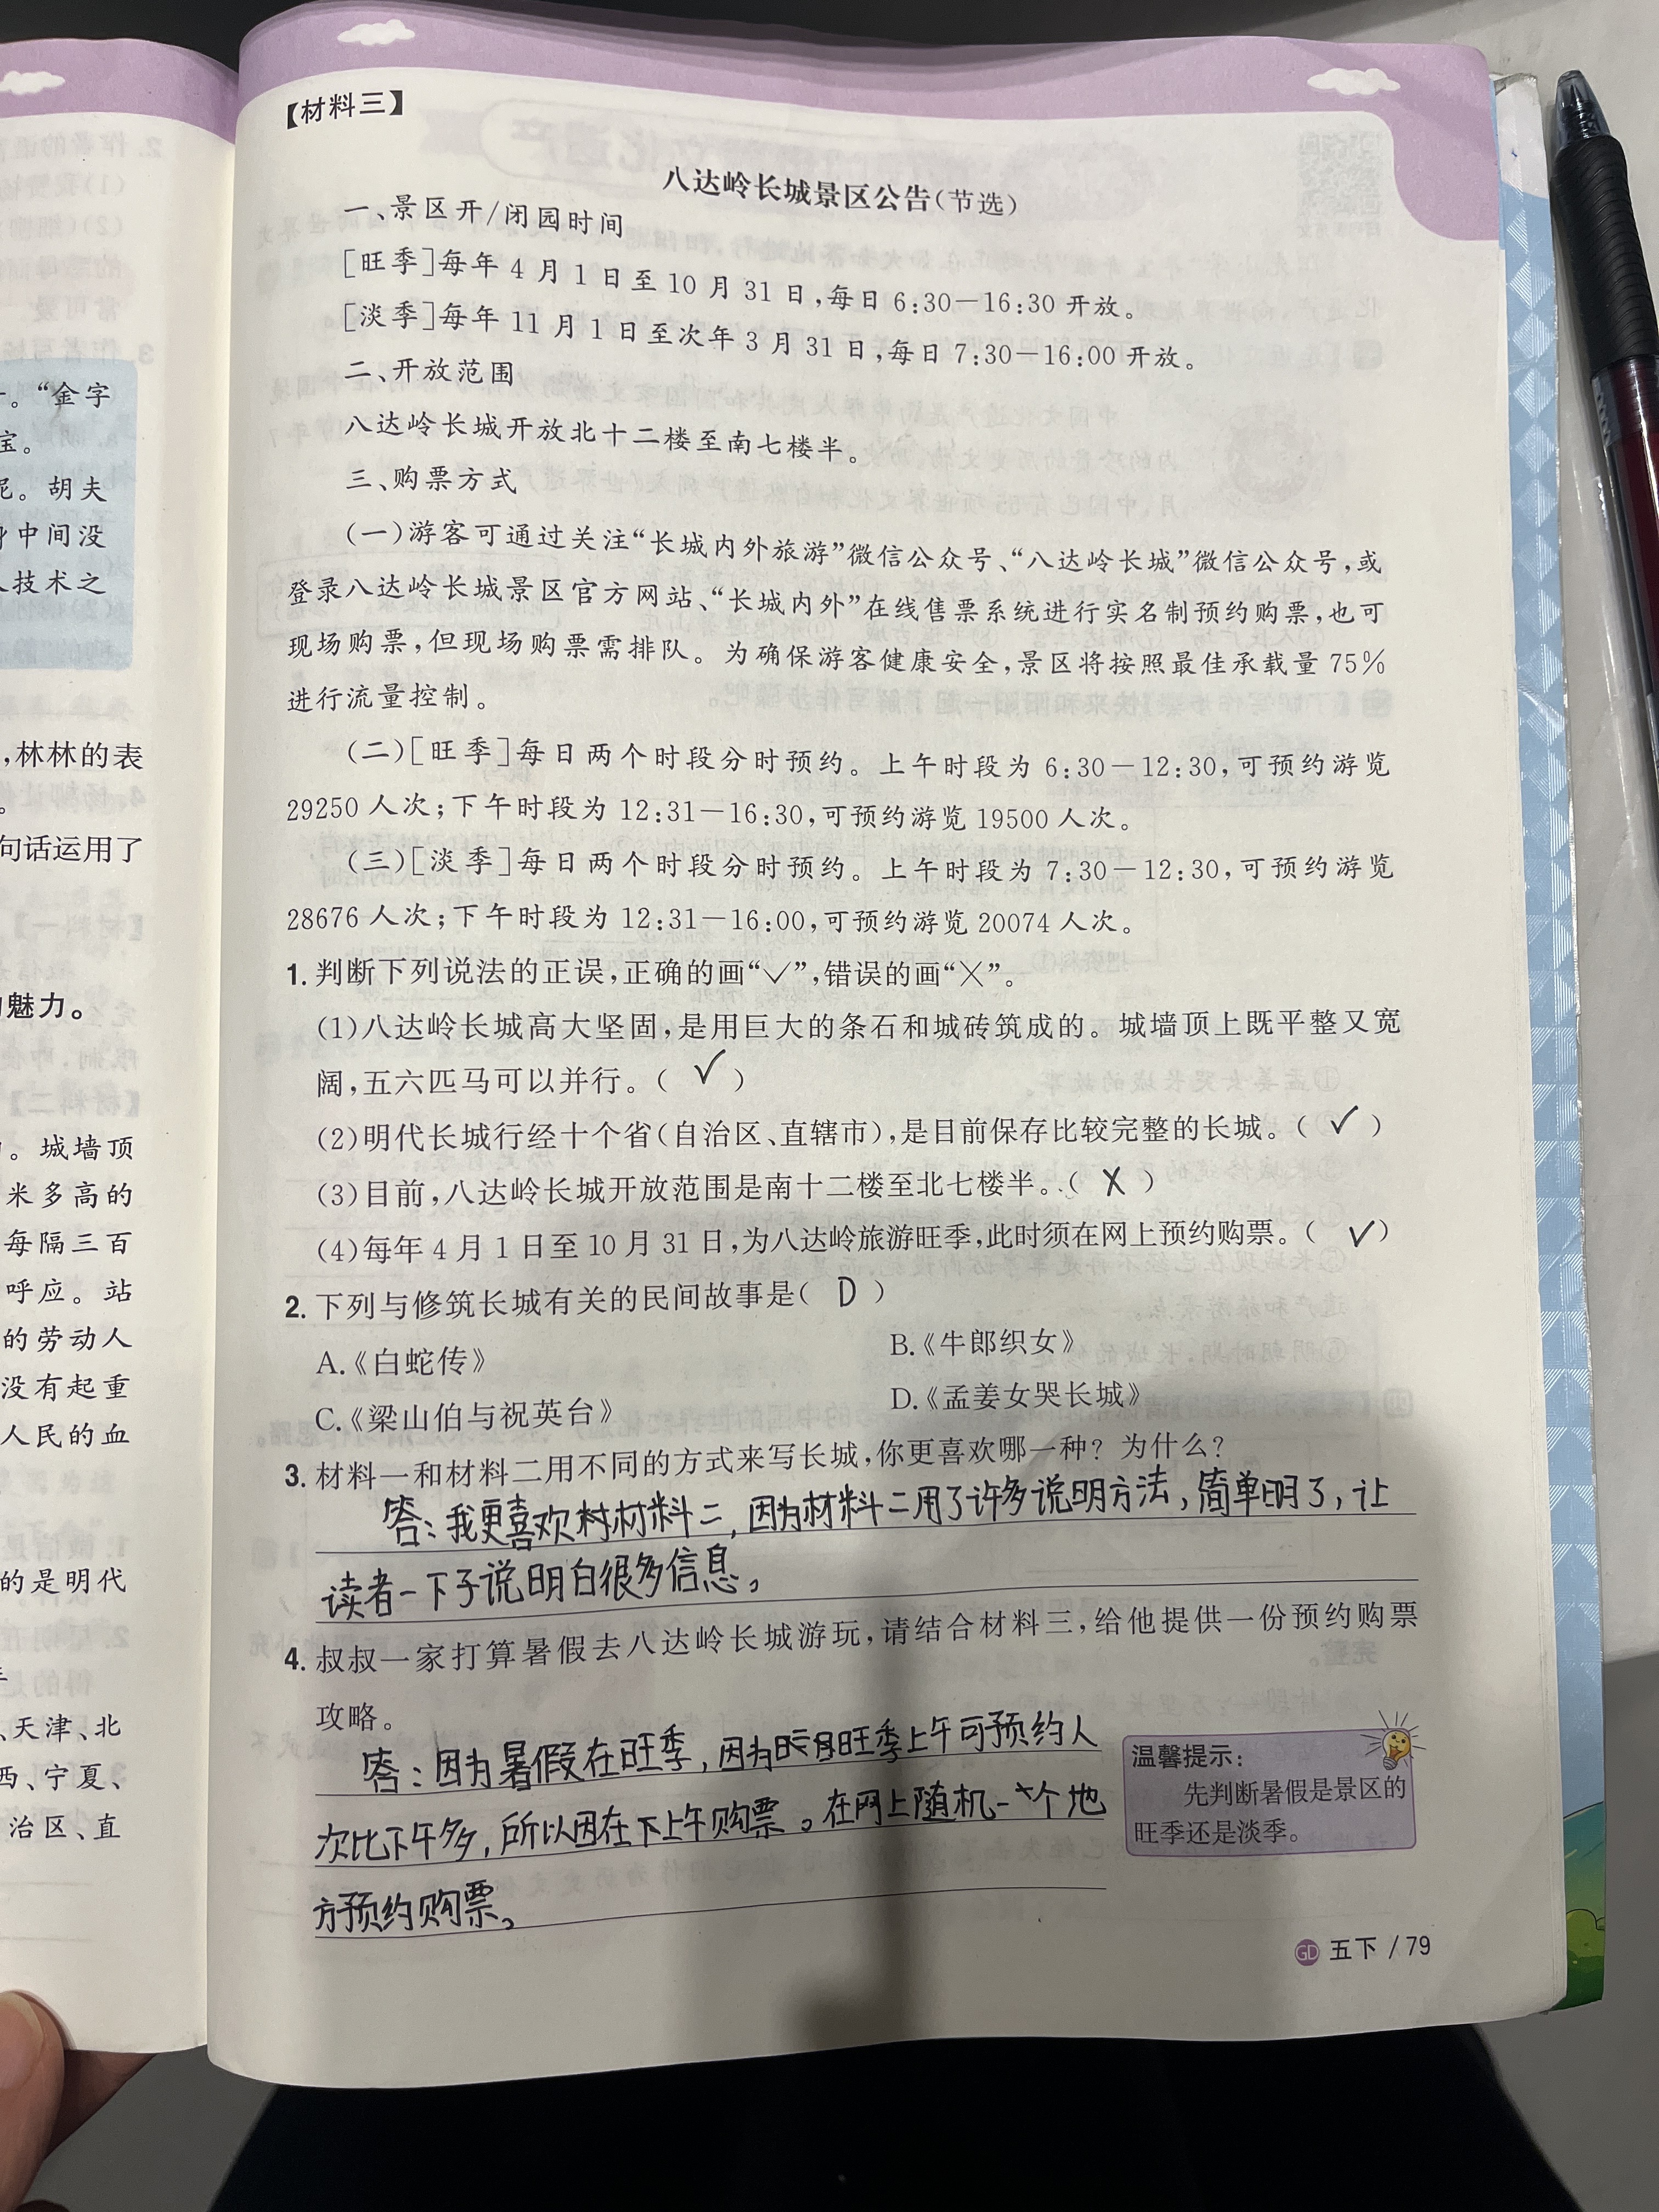 【材料三】
八达岭长城景区公告(节选)
一、景区开/闭园时间
[旺季]每年 4 月 1 日至 10 月 31 日,每日 6:30—16:30 开放。
[淡季]每年 11 月 1 日至次年 3 月 31 日,每日 7:30—16:00 开放。
二、开放范围
八达岭长城开放北十二楼至南七楼半。
三、购票方式
(一)游客可通过关注“长城内外旅游”微信公众号、“八达岭长城”微信公众号,或
登录八达岭长城景区官方网站、“长城内外”在线售票系统进行实名制预约购票,也可
现场购票,但现场购票需排队。为确保游客健康安全,景区将按照最佳承载量 75%
进行流量控制。
(二)[旺季]每日两个时段分时预约。上午时段为 6:30—12:30,可预约游览
29250 人次;下午时段为 12:31—16:30,可预约游览 19500 人次。
(三)[淡季]每日两个时段分时预约。上午时段为 7:30—12:30,可预约游览
28676 人次;下午时段为 12:31—16:00,可预约游览 20074 人次。
1. 判断下列说法的正误,正确的画“✓”,错误的画“×”。
(1)八达岭长城高大坚固,是用巨大的条石和城砖筑成的。城墙顶上既平整又宽
阔,五六匹马可以并行。( ✓ )
(2)明代长城行经十个省(自治区、直辖市),是目前保存比较完整的长城。( ✓ )
(3)目前,八达岭长城开放范围是南十二楼至北七楼半。( X )
(4)每年 4 月 1 日至 10 月 31 日,为八达岭旅游旺季,此时须在网上预约购票。( ✓ )
2. 下列与修筑长城有关的民间故事是( D )
A.《白蛇传》 B.《牛郎织女》
C.《梁山伯与祝英台》 D.《孟姜女哭长城》
3. 材料一和材料二用不同的方式来写长城,你更喜欢哪一种? 为什么?
答:我更喜欢材料二,因为材料二用了许多说明方法,简单明了,让
读者一下子说明白很多信息。
4. 叔叔一家打算暑假去八达岭长城游玩,请结合材料三,给他提供一份预约购票
攻略。
答:因为暑假在旺季,因为旺季上午可预约人
次比下午多,所以在上午购票。在网上随机一个地
方预约购票。
温馨提示:
先判断暑假是景区的
旺季还是淡季。
GD 五下 / 79
。“金字
宝。
呢。胡夫
中间没
技术之
,林林的表
。
句话运用了
魅力。
。城墙顶
米多高的
每隔三百
呼应。站
的劳动人
没有起重
人民的血
的是明代
、天津、北
西、宁夏、
治区、直